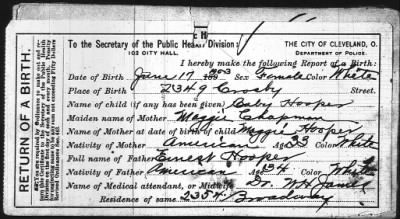 To the Secretary of the Public Health Division:
102 CITY HALL.
THE CITY OF CLEVELAND, O.
DEPARTMENT OF POLICE.
I hereby make the following Report of a Birth:
Date of Birth June 17 1903 Sex Female Color White
Place of Birth 2349 Crosby Street.
Name of child (if any has been given) Baby Hooper
Maiden name of Mother Maggie Chapman
Name of Mother at date of birth of child Maggie Hooper
Nativity of Mother American Age 33 Color White
Full name of Father Ernest Hooper
Nativity of Father American Age 34 Color White
Name of Medical attendant, or Midwife Dr. W.H.
Residence of same 2354 Broadway
RETURN OF A BIRTH.